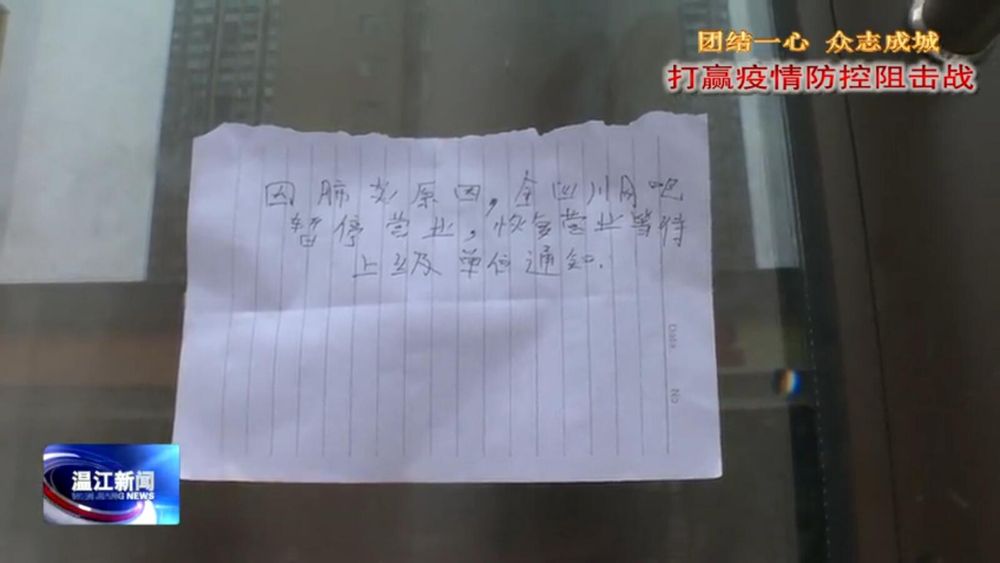 团结一心 众志成城
打赢疫情防控阻击战
因肺炎原因,全四川网吧
暂停营业,恢复营业等待
上级及单位通知.
Date
NO
温江新闻
WEN JIANG NEWS